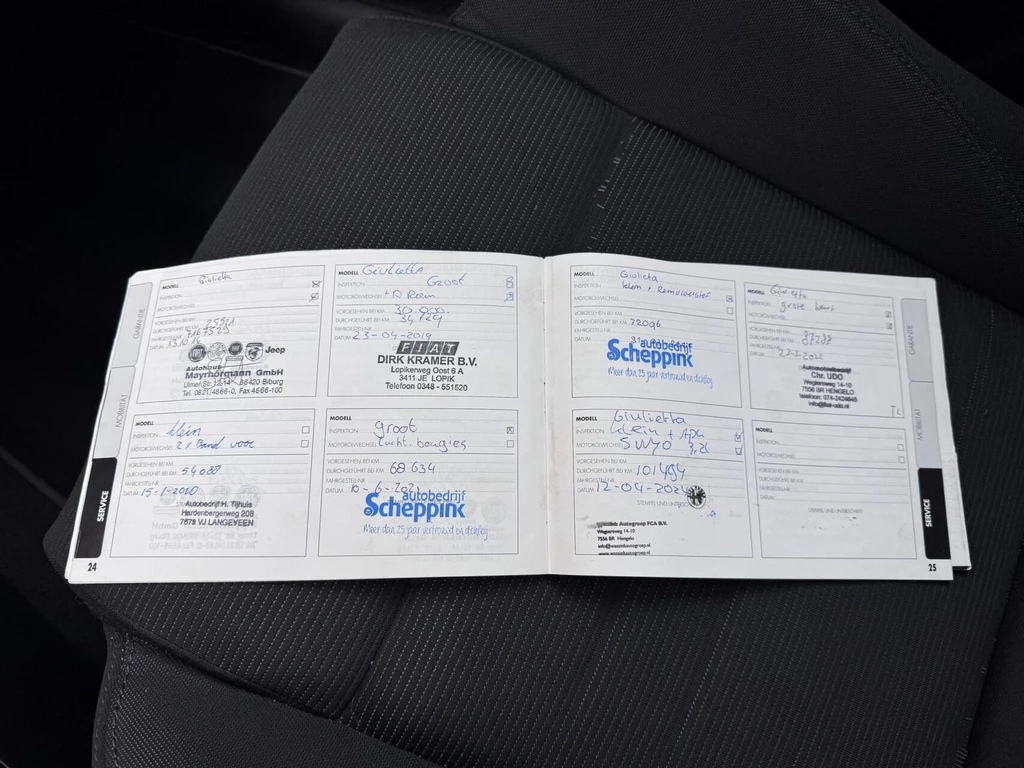 GARANTIE
MOBILITÄT
SERVICE
24
MODELL Giulietta
INSPEKTION
MOTORÖLWECHSEL
VORGESEHEN BEI KM
DURCHGEFÜHRT BEI KM
FAHRGESTELLNR.
DATUM 13.10.16
Jeep
Autohaus
Mayrhörmann GmbH
86420 Biburg
MODELL GIULIETTA
INSPEKTION Groot
MOTORÖLWECHSEL
VORGESEHEN BEI KM 30.000
DURCHGEFÜHRT BEI KM
FAHRGESTELLNR.
DATUM 23-04-2019
FIAT
DIRK KRAMER B.V.
Lopikerweg Oost 6 A
3411 JE LOPIK
Telefoon 0348 - 551520
MODELL
INSPEKTION klein
MOTORÖLWECHSEL 2x Band voor
VORGESEHEN BEI KM
DURCHGEFÜHRT BEI KM 54088
FAHRGESTELLNR.
DATUM 15-1-2020
Autobedrijf H. Tijhuis
Hardenbergerweg 208
7678 VJ LANGEVEEN
MODELL
INSPEKTION groot
MOTORÖLWECHSEL Lucht. bougies
VORGESEHEN BEI KM
DURCHGEFÜHRT BEI KM 68634
FAHRGESTELLNR.
DATUM 10-6-2021
autobedrijf
Scheppink
Meer dan 25 jaar vertrouwd en dichtbij
MODELL Giulieta
INSPEKTION klein + Remvloeistof
MOTORÖLWECHSEL
VORGESEHEN BEI KM
DURCHGEFÜHRT BEI KM 72096
FAHRGESTELLNR.
DATUM
autobedrijf
Scheppink
Meer dan 25 jaar vertrouwd en dichtbij
MODELL Giulietta
INSPEKTION grote beurt
MOTORÖLWECHSEL
VORGESEHEN BEI KM
DURCHGEFÜHRT BEI KM 87288
FAHRGESTELLNR.
DATUM
Automobielbedrijf
Chr. UDO
Wegtersweg 14-10
7556 BR HENGELO
telefoon: 074-2424645
MODELL Giulietta
INSPEKTION klein + Apk
MOTORÖLWECHSEL 5W40 3,2l
VORGESEHEN BEI KM
DURCHGEFÜHRT BEI KM 101484
FAHRGESTELLNR.
DATUM 12-04-2024
STEMPEL UND UNTERSCHRIFT
Autogroep FCA B.V.
Wegtersweg 14-10
7556 BR Hengelo
info@wassinkautogroep.nl
www.wassinkautogroep.nl
MODELL
INSPEKTION
MOTORÖLWECHSEL
VORGESEHEN BEI KM
DURCHGEFÜHRT BEI KM
FAHRGESTELLNR.
DATUM
STEMPEL UND UNTERSCHRIFT
GARANTIE
MOBILITÄT
SERVICE
25